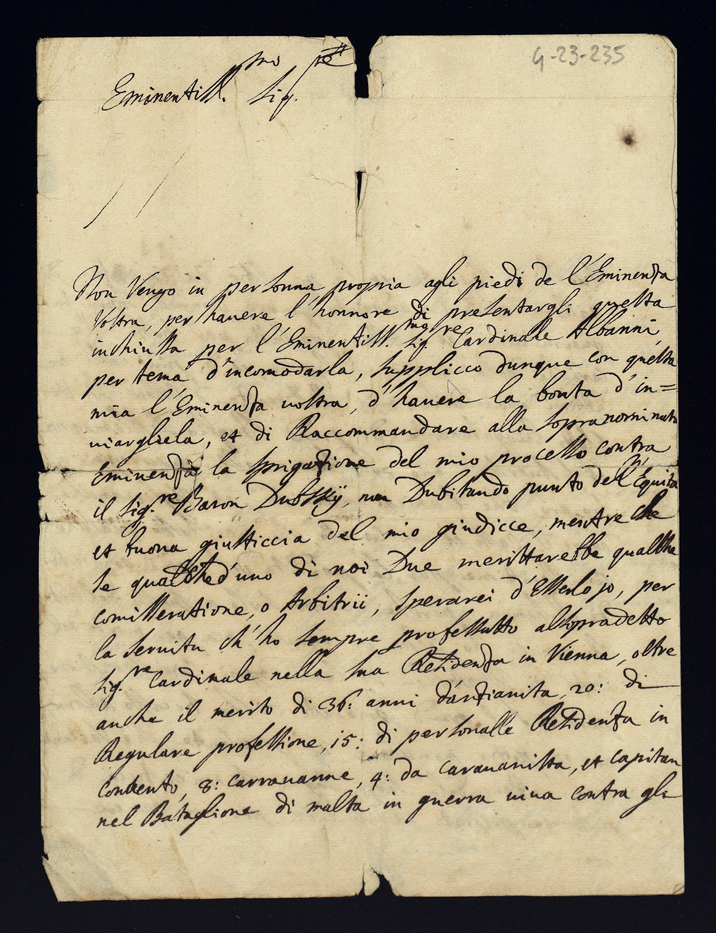 G-23-235
Eminentiss.mo Sig.re
Non Vengo in personna propria agli piedi de l'Eminenza
Vostra, per havere l'honnore di presentargli questa
inchiussa per l'Eminentiss.mo Sig.re Cardinale Albanni,
per tema d'incomodarla, supplicco dunque con questa
mia l'Eminenza vostra, d'havere la bonta d'in=
viargliela, et di Raccommandare alla sopranominata
Eminenza la sprigazione del mio processo contra
il Sig.re Baron Dubskÿ, non Dubitando punto del Equita
et buona giusticcia del mio giudicce, mentre che
se qualched'uno di noi Due merittarebbe qualche
comisseratione, o Arbitrii, sperarei d'Esserlo jo, per
la servitu ch'ho sempre professatto alsopradetto
Sig.re Cardinale nella sua Residenza in Vienna, oltre
anche il merito di 36: anni d'antianita, 20: di
Regulare professione, 15: di personalle Residenza in
convento, 8: carravanne, 4: da caravanista, et capitan
nel Bataglione di malta in guerra viva contra gli